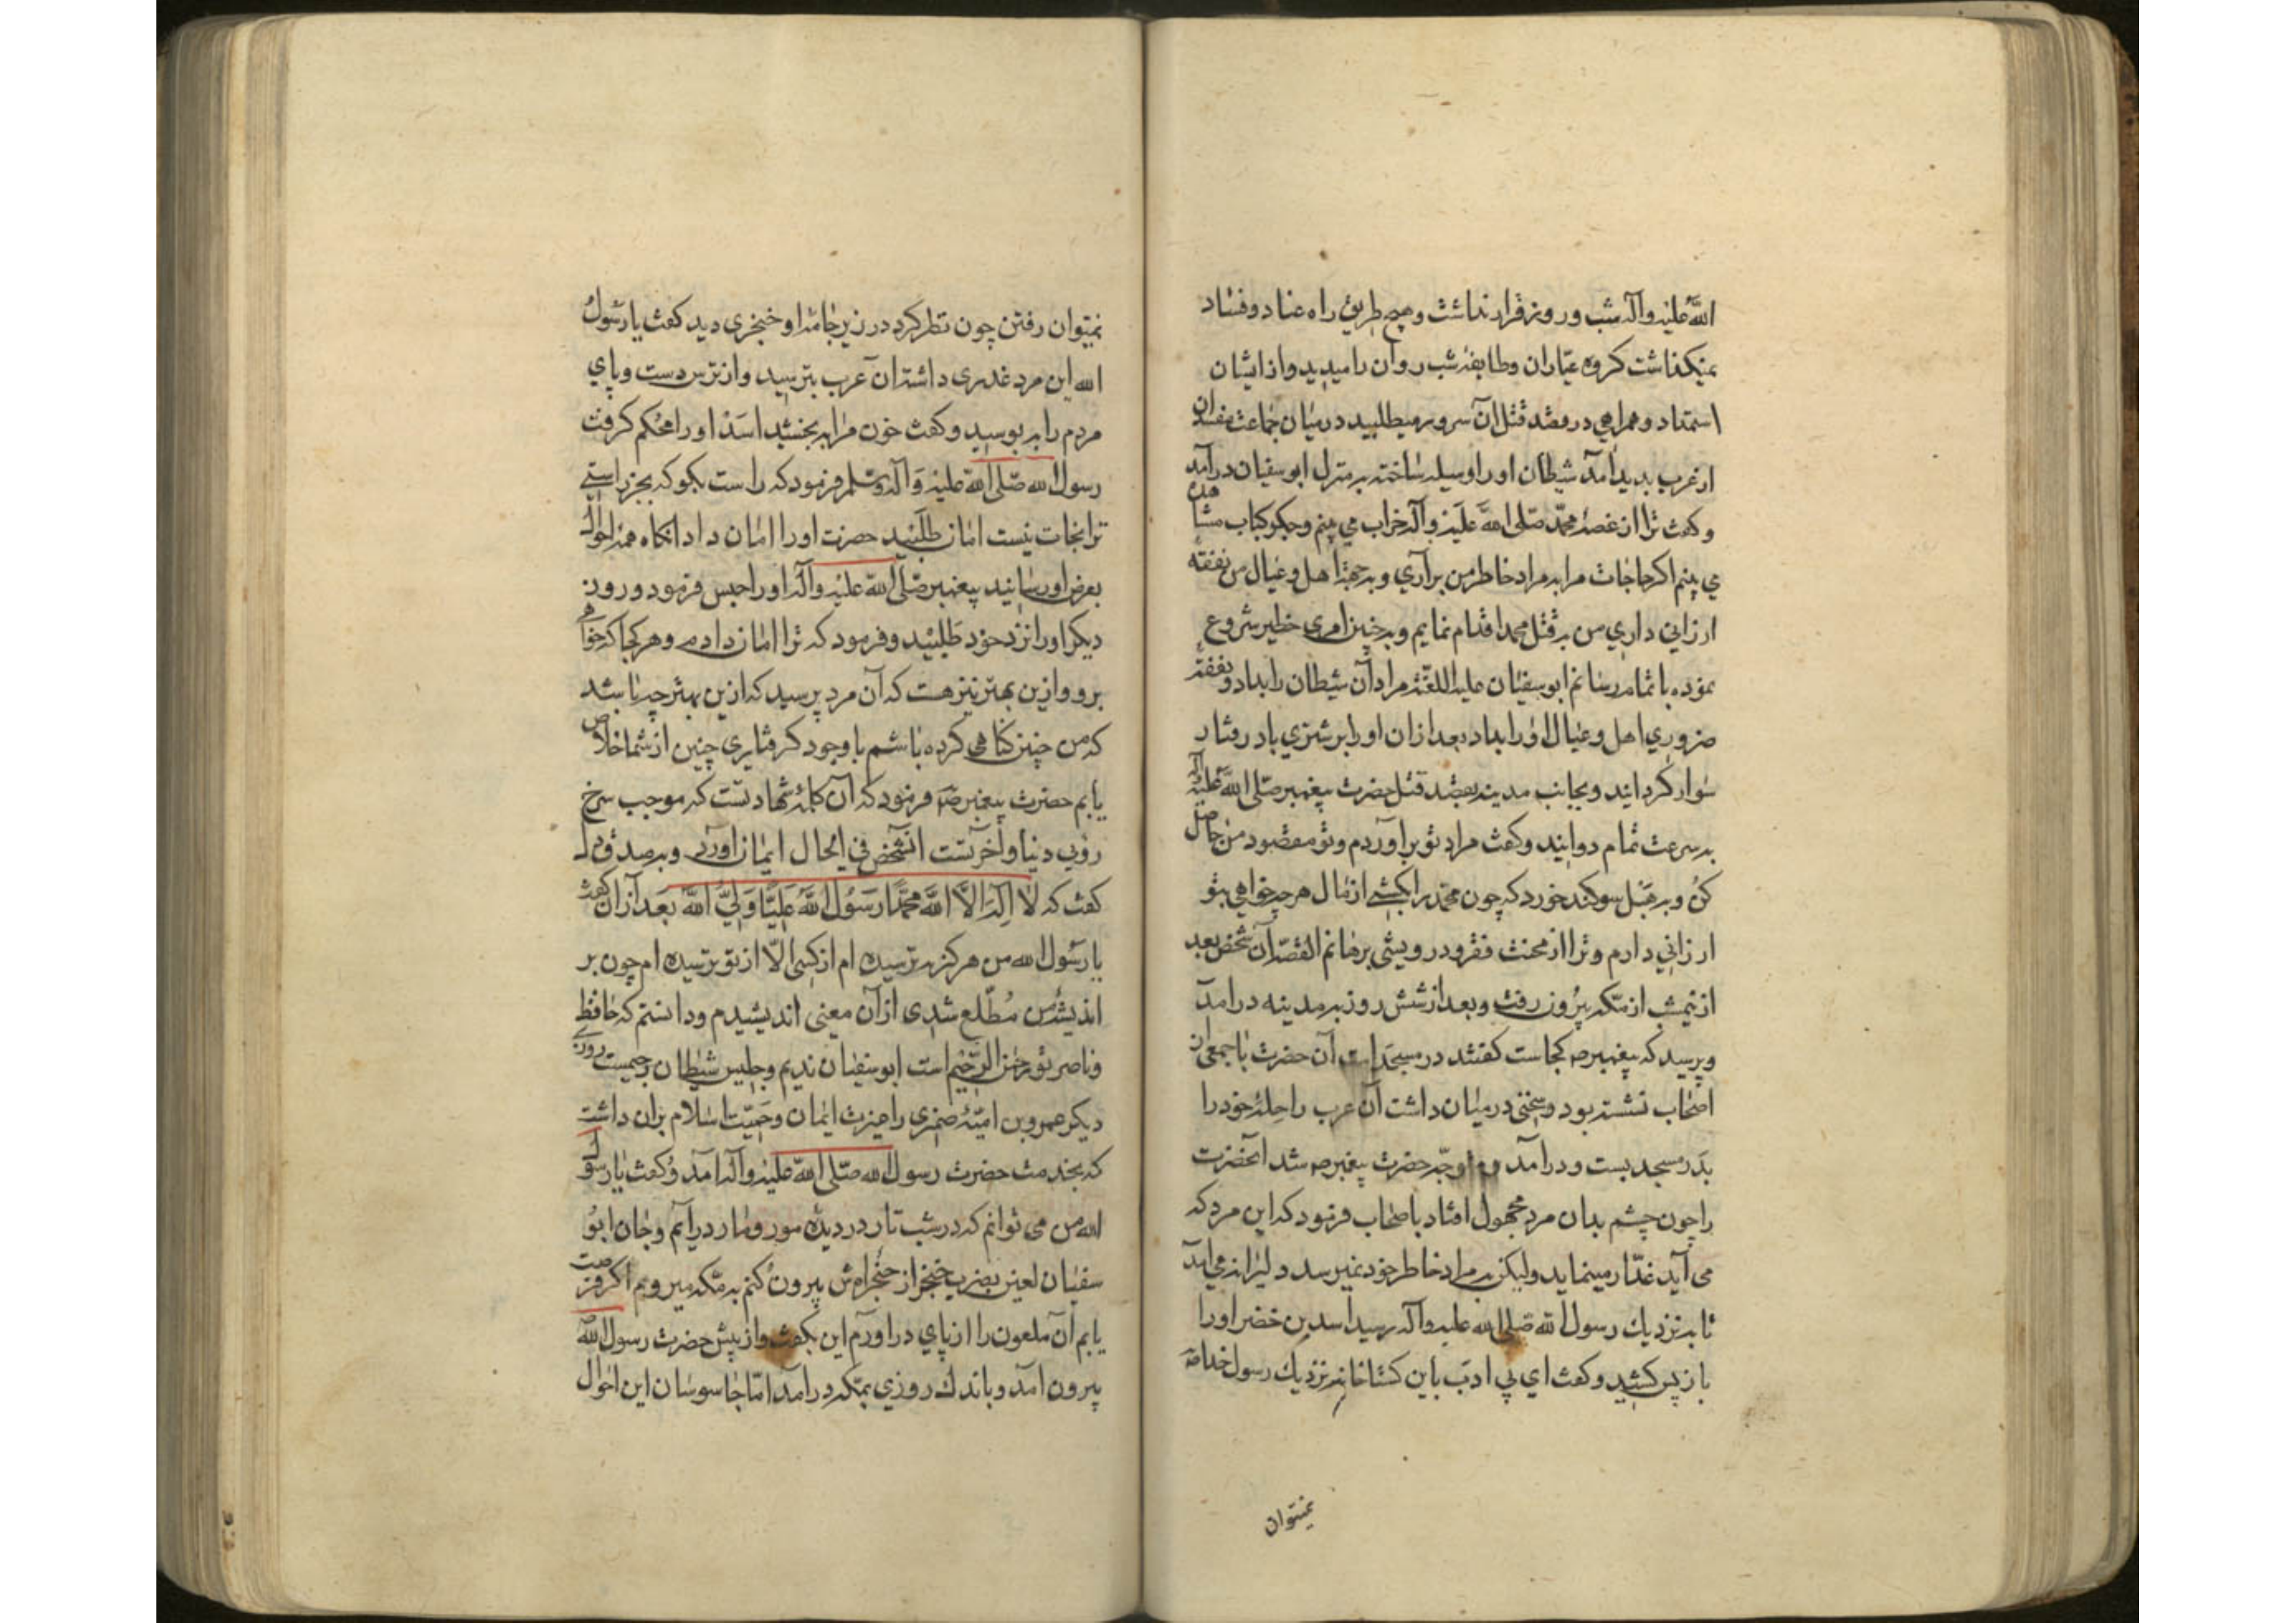 الله علیه وآله شب وروز قرار نداشت وهیچ طریق راه عناد وفساد
نمیکذاشت کروه عیّاران وطایفه شب روان رامیدید وازایشان
استمداد وهمراهی درقصد قتل آن سرور میطلبید درمیان جماعت مفسدان
ازعرب بدید آمد شیطان اورا وسیله ساخته به منزل ابوسفیان درآمد
وکفت ترا ازغصهٔ محمّد صلی الله علیه وآله خراب می بینم وجکر کباب مشاهده
می بینم اکر حاجات مرا به مراد خاطر من برآری وبه جهة اهل وعیال من نفقهٔ
ارزانی داری من به قتل محمد اقدام نمایم وبه چنین امری خطیر شروع
نموده باتمام رسانم ابوسفیان علیه اللعّنة مراد آن شیطان را بداد ونفقهٔ
ضروری اهل وعیال اورا بداد بعدازان اورا برشتری باد رفتار
سوار کردانید وبجانب مدینه بقصد قتل حضرت پیغمبر صلی الله علیه وآله
به سرعت تمام دوانید وکفت مراد تو برآوردم وتو مقصود من حاصل
کن وبه هبل سوکند خورد که چون محمّد را بکشی ازمال هرچه خواهی بتو
ارزانی دارم وترا ازمحنت فقر ودرویشی برهانم القصّه آن شخص بعد
ازنیمشب ازمکه بیرون رفت وبعد ازشش روز به مدینه درآمد
وپرسید که پیغمبر صه کجاست کفتند درمسجد است آن حضرت باجمعی از
اصحاب نشسته بود وسخنی درمیان داشت آن عرب راحلهٔ خودرا
بدر مسجد بست ودرآمد ومتوجّه حضرت پیغمبر صه شد آنحضرت
راچون چشم بدان مرد مجهول افتاد باصحاب فرمود که این مرد که
می آید غدّار مینماید ولیکن به مراد خاطر خود نمیرسد ودلیرانه می آید
تا به نزدیک رسول الله صلی الله علیه وآله رسید اسد بن خضر اورا
بازپس کشید وکفت ای بی ادب باین کستاخانه نزدیک رسول خدا صه
نمیتوان
نمیتوان رفتن چون نظر کرد درزیر جامهٔ او خنجری دید کفت یارسول
الله این مرد غدری داشته آن عرب بترسید وازترس دست وپای
مردم را به بوسید وکفت خون مرا به بخشید اسد اورا محکم کرفت
رسول الله صلی الله علیه وآله وسلم فرمود که راست بکو که بجز راستی
ترا نجات نیست امان طلبید حضرت اورا امان داد آنکاه همه احوال
بعرض اورسانید پیغمبر صلی الله علیه وآله اورا حبس فرمود وروز
دیکر اورا نزد خود طلبید وفرمود که ترا امان دادم وهر کجا که خواهی
برو وازین بهتر نیز هست که آن مرد پرسید که ازین بهتر چه باشد
که من چنین کناهی کرده باشم باوجود کرفتاری چنین ازشما خلاص
یابم حضرت پیغمبر صه فرمود که آن کلمهٔ شهادتست که موجب سرخ
رویی دنیا وآخرتست آنشخص فی الحال ایمان آورد وبه صدق دل
کفت که لا اله الا الله محمّدا رسول الله علیّا ولیّ الله بعد ازان کفت
یارسول الله من هرکز نه ترسیده ام ازکسی الّا ازتو بترسیده ام چون بر
اندیشهٔ من مُطّلع شدی ازآن معنی اندیشیدم ودانستم که حافظ
وناصر تو رحمن الرّحیم است ابوسفیان ندیم وجلیس شیطان رجیمست روزی
دیکر عمرو بن امیّهٔ ضمری راغیرت ایمان وحمیّت اسلام بران داشت
که بخدمت حضرت رسول الله صلی الله علیه وآله آمد وکفت یارسول
الله من می توانم که درشب تار دردیدهٔ مور ومار درآیم وجان ابو
سفیان لعین بضرب خنجر ازحنجراه ش بیرون کنم به مکه میروم اکر فرصت
یابم آن ملعون را ازپای درآورم این بکفت وازپیش حضرت رسول الله صه
بیرون آمد وباندک روزی بمکه درآمد امّا جاسوسان این احوال